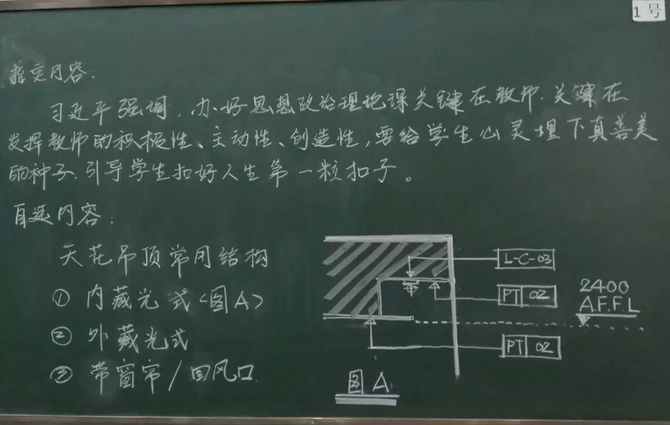 1号
指定内容:
习近平强调,办好思想政治理论课关键在教师,关键在
发挥教师的积极性、主动性、创造性,要给学生心灵埋下真善美
的种子,引导学生扣好人生第一粒扣子。
自选内容:
天花吊顶常用结构
① 内藏光式<图A>
② 外藏光式
③ 带窗帘/回风口
L-C-03
PT 02
2400
A.F.F.L
PT 02
图 A